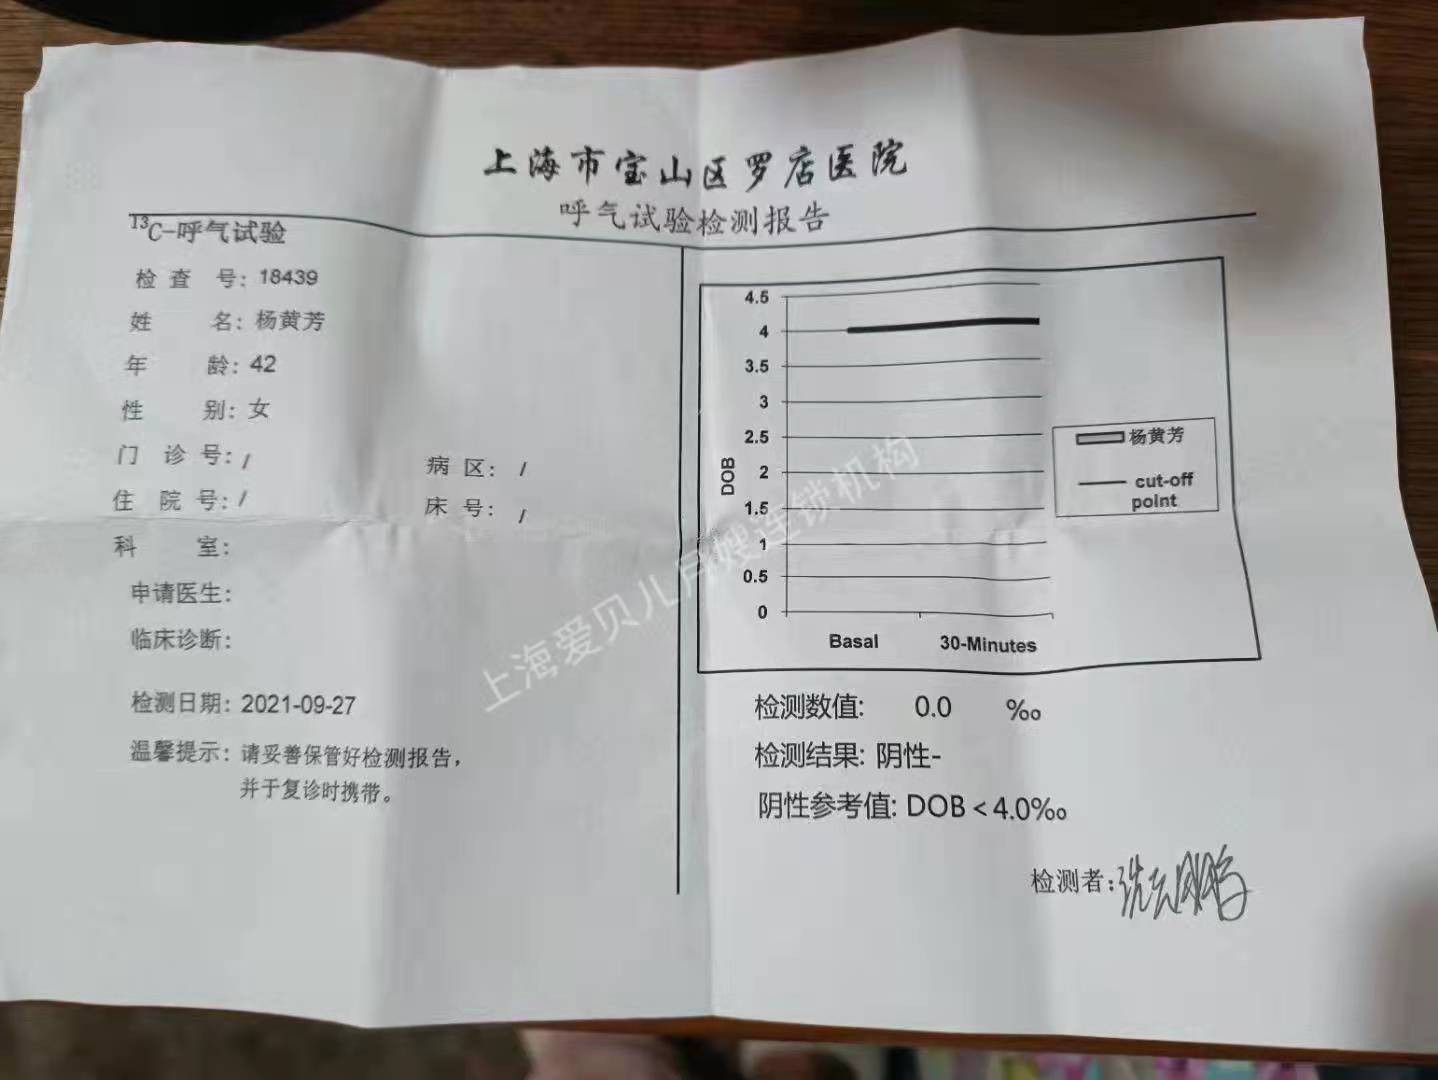 上海市宝山区罗店医院
呼气试验检测报告
13C-呼气试验
检查号：18439
姓名：杨黄芳
年龄：42
性别：女
门诊号：/ 病区：/
住院号：/ 床号：/
科室：
申请医生：
临床诊断：
检测日期：2021-09-27
温馨提示：请妥善保管好检测报告，
并于复诊时携带。
4.5
4
3.5
3
2.5
2
1.5
1
0.5
0
DOB
Basal 30-Minutes
杨黄芳
cut-off
point
检测数值: 0.0 ‰
检测结果: 阴性-
阴性参考值: DOB < 4.0‰
检测者:
上海爱贝儿月嫂连锁机构